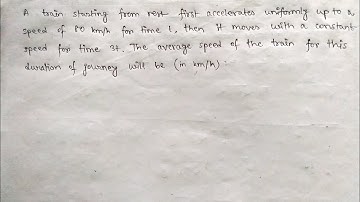 A train starting from rest first accelerates uniformly up to a
speed of 80 km/h for time t, then it moves with a constant
speed for time 3t. The average speed of the train for this
duration of journey will be (in km/h) :